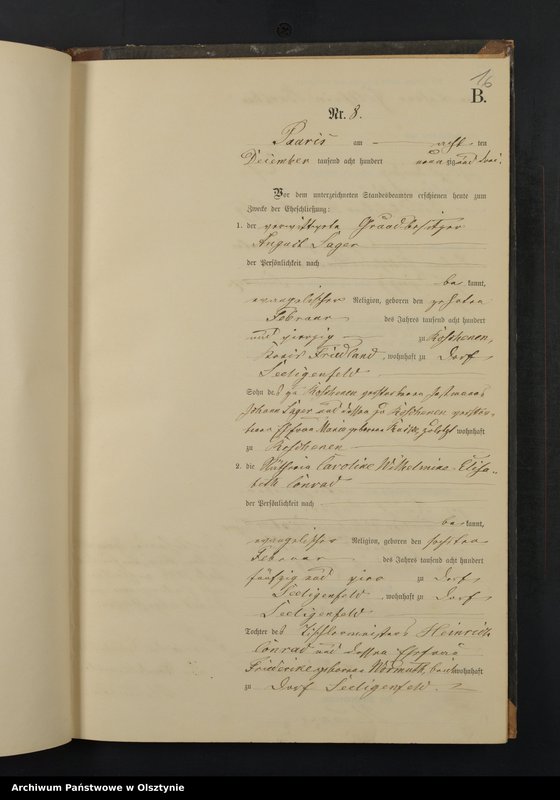 16
B.
Nr. 8.
Paaris am acht ten
December tausend acht hundert neunzig und zwei.
Vor dem unterzeichneten Standesbeamten erschienen heute zum
Zwecke der Eheschließung:
1. der verwittwete Grundbesitzer
August Sager
der Persönlichkeit nach
be kannt,
evangelischer Religion, geboren den zehnten
Februar des Jahres tausend acht hundert
und vierzig zu Koschenen,
Kreis Friedland, wohnhaft zu Dorf
Seeligenfeld
Sohn des zu Koschenen verstorbenen Instmanns
Johann Sager und dessen zu Koschenen verstor-
benen Ehefrau Maria geborenen zuletzt wohnhaft
zu Koschenen
2. die Caroline Wilhelmine Elisa-
beth Conrad
der Persönlichkeit nach
be kannt,
evangelischer Religion, geboren den sechsten
Februar des Jahres tausend acht hundert
fünfzig und vier zu Dorf
Seeligenfeld, wohnhaft zu Dorf
Seeligenfeld
Tochter des Tischlermeisters Heinrich
Conrad und dessen Ehefrau
Friederike geborenen Wermuth, beide wohnhaft
zu Dorf Seeligenfeld.
Archiwum Państwowe w Olsztynie